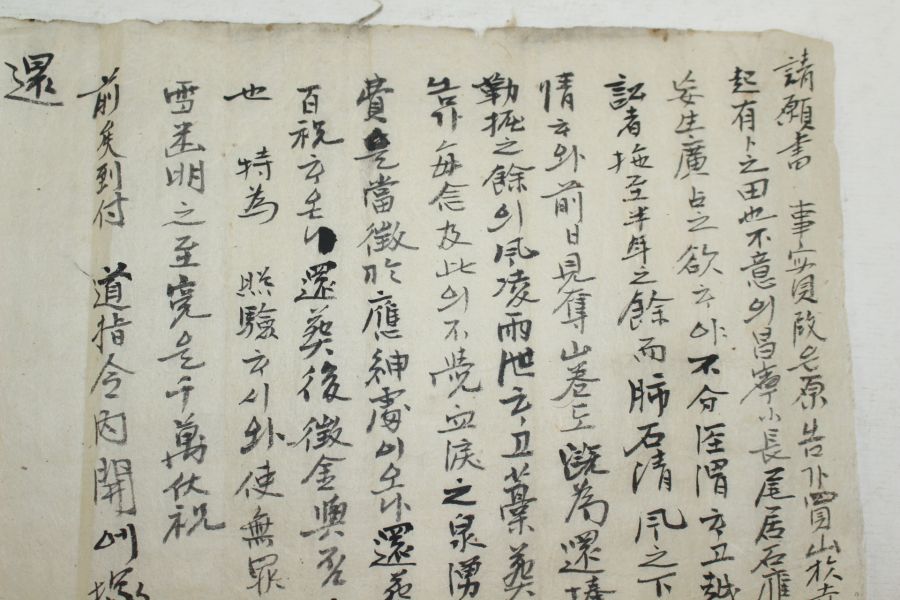 請願書 事實段은原告가買山於
起有卜之田也不意의昌寧小長尾居石應
妄生廣占之欲ᄒᆞ야不分涇渭ᄒᆞ고越
訟者拖至半年之餘而肺石淸風之下
情ᄒᆞ와前日見奪山卷도 旣為還推
勒掘之餘의風凌雨泄ᄒᆞ고藁葬
告가每念及此의不覺血淚之泉湧
費은當徵於應紳處이오나還葬
百祝ᄒᆞ오니 還葬後徵金與否
也 特為 照驗ᄒᆞ시와使無罪
雪 明之至寃을千萬伏祝
前矣到付 道指令內開에塚
還